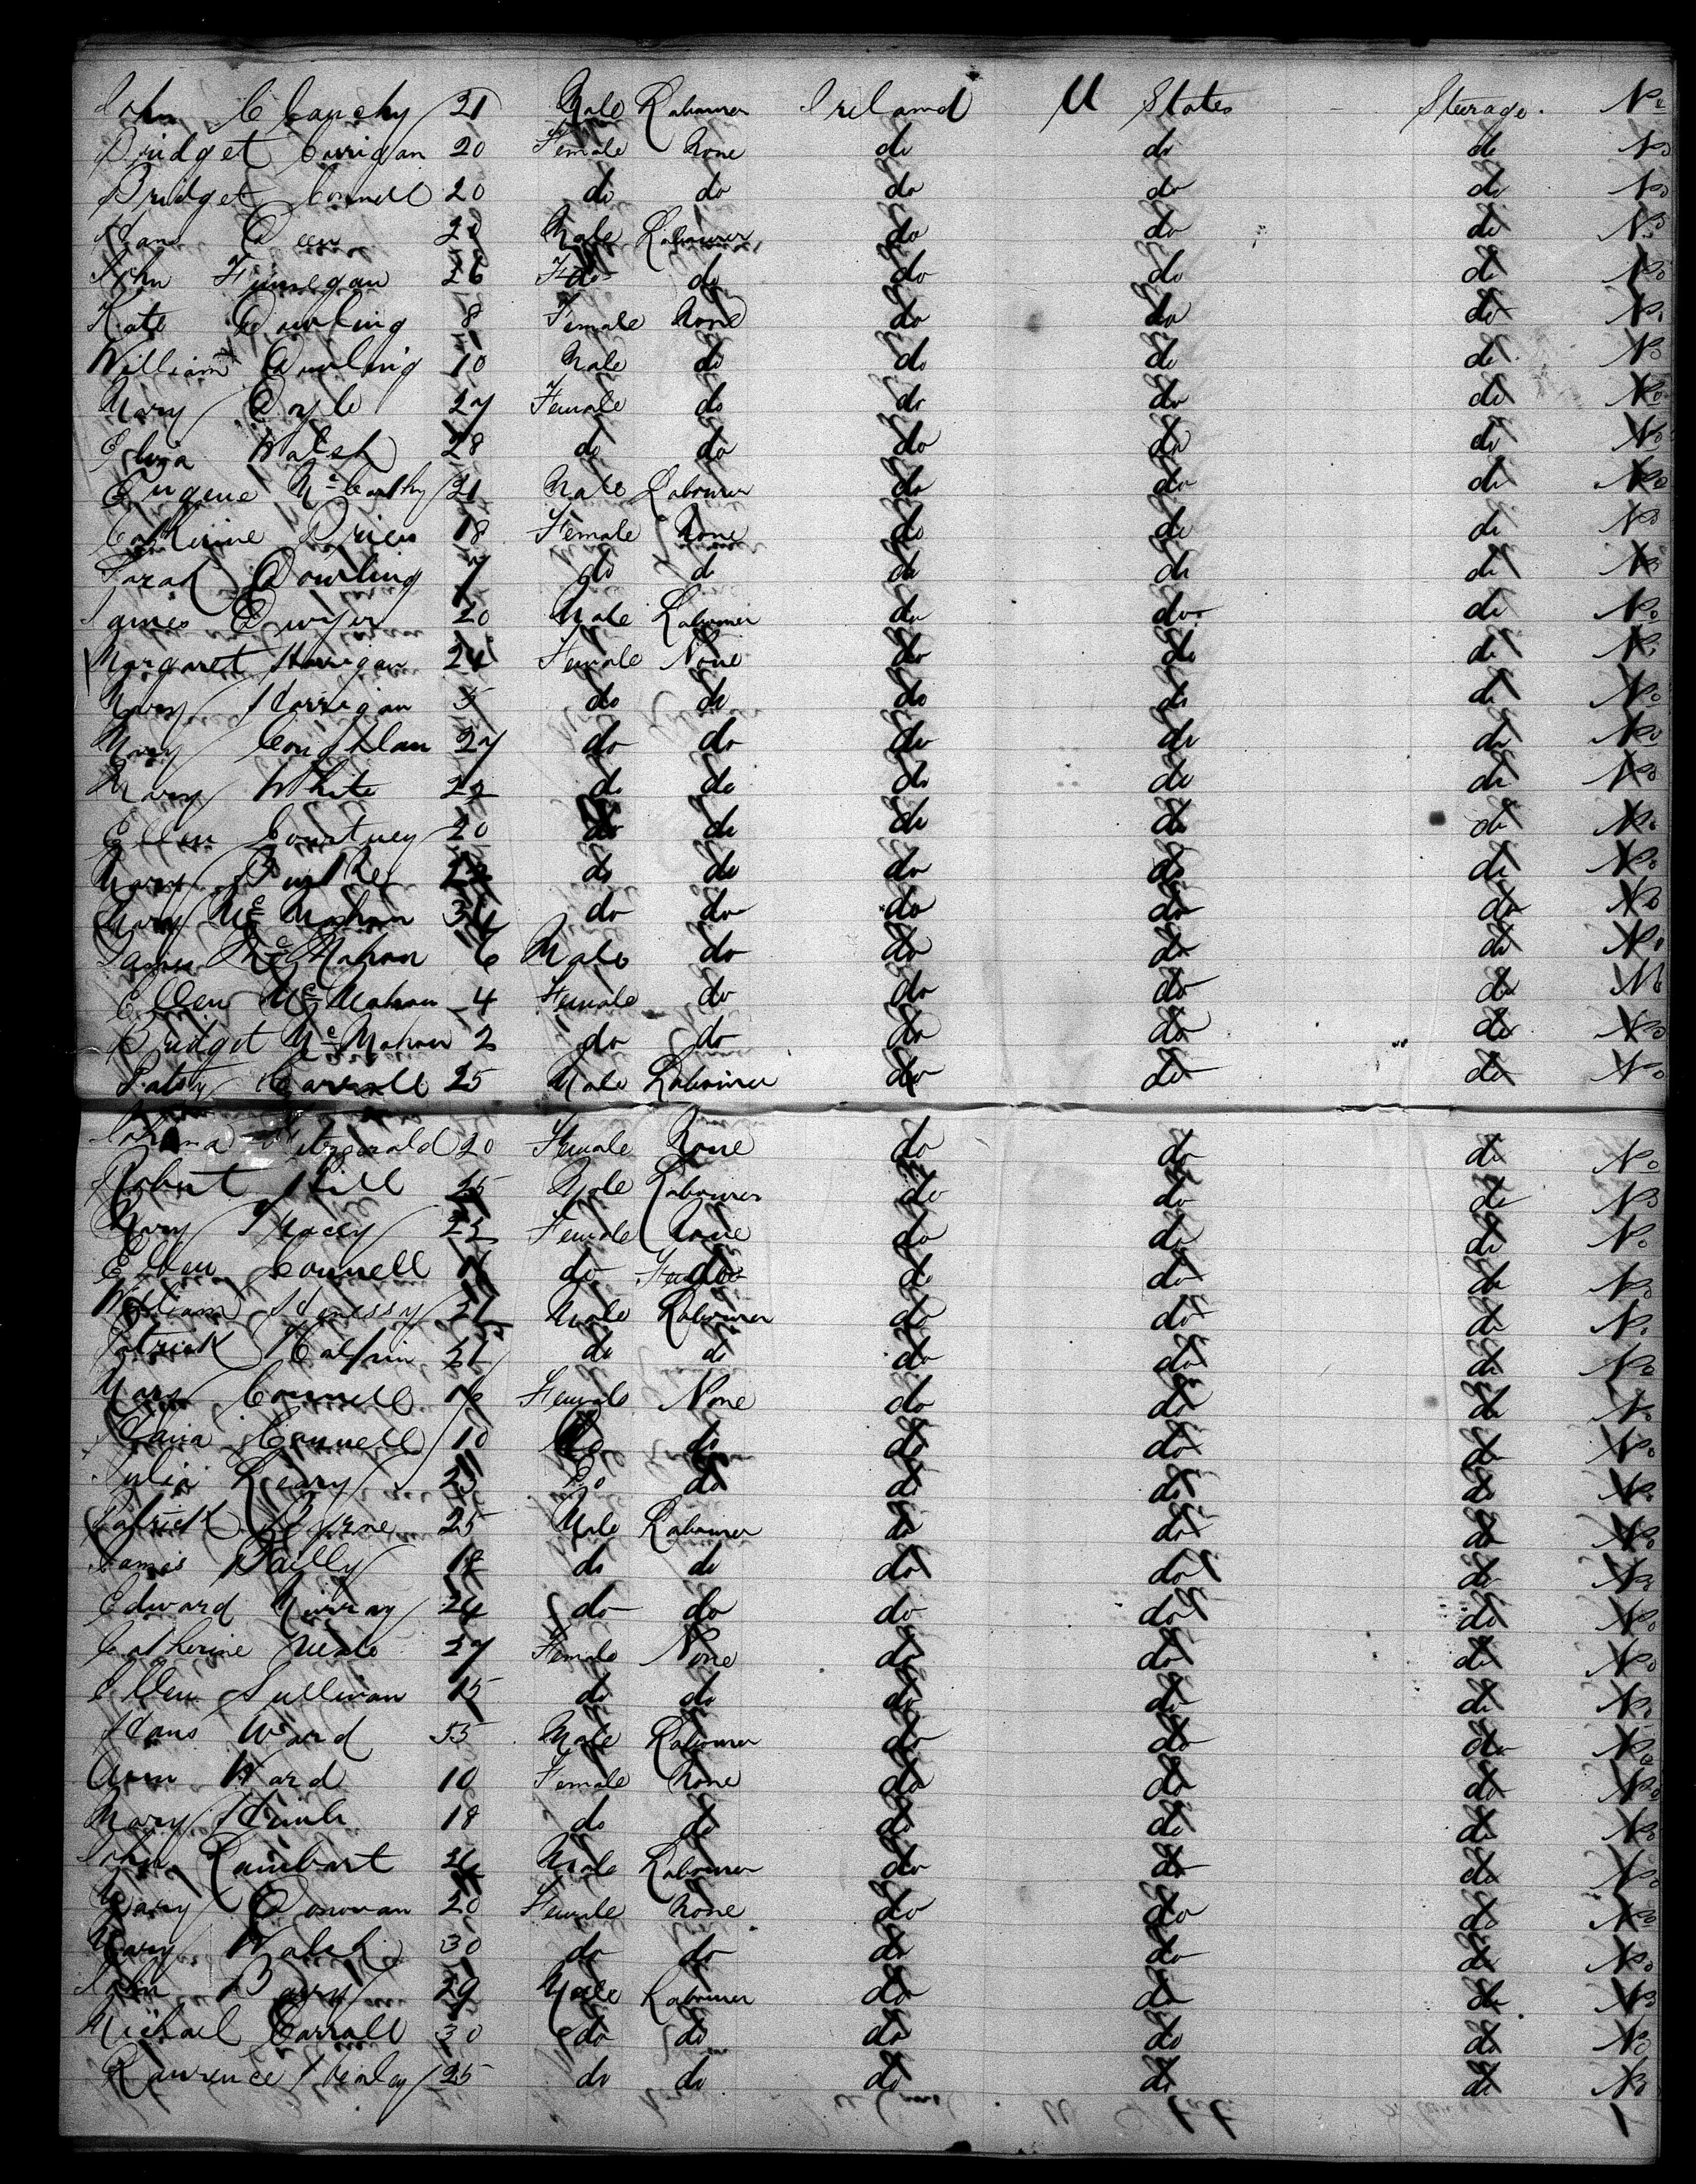 John Clanchy 21 Male Labourer Ireland U States Steerage No
Bridget Corrigan 20 Female None do do do No
Bridget Connell 20 do do do do do No
Male Labourer do do do No
John Finnegan 26 do do do do do No
Kate Dowling 8 Female None do do do No
William Dowling 10 Male do do do do No
Mary Doyle 27 Female do do do do No
Eliza Walsh 28 do do do do do No
Eugene McCarthy 21 Male Labourer do do do No
Catherine 18 Female None do do do No
Sarah Dowling 7 do do do do do No
James Dwyer 20 Male Labourer do do do No
Margaret Harrigan 24 Female None do do do No
Mary Harrigan 5 do do do do do No
Mary Coughlan 27 do do do do do No
Mary White 22 do do do do do No
Ellen Courtney 20 do do do do do No
Mary Burke do do do do do No
Mary McMahon 34 do do do do do No
James McMahon 6 Male do do do do No
Ellen McMahon 4 Female do do do do No
Bridget McMahon 2 do do do do do No
Patsy Carroll 25 Male Labourer do do do No
Fitzgerald 20 Female None do do do No
Robert Hill 25 Male Labourer do do do No
Mary Tracey 22 Female None do do do No
Ellen Connell do do do do do No
William Henessy Male Labourer do do do No
Patrick Halpin 21 do do do do do No
Mary Connell 16 Female None do do do No
Connell 10 Do do do do do No
Julia Leary 23 Do do do do do No
Patrick Byrne 25 Male Labourer do do do No
James Reilly 18 do do do do do No
Edward Murray 24 do do do do do No
Catherine Meade 27 Female None do do do No
Ellen Sullivan 15 do do do do do No
Hans Ward 55 Male Labourer do do do No
Ann Ward 10 Female None do do do No
Mary 18 do do do do do No
John Lambart Male Labourer do do do No
Mary Donovan 20 Female None do do do No
Mary Walsh 30 do do do do do No
John Barry 29 Male Labourer do do do No
Michael Carroll 30 do do do do do No
Lawrence Healey 25 do do do do do No